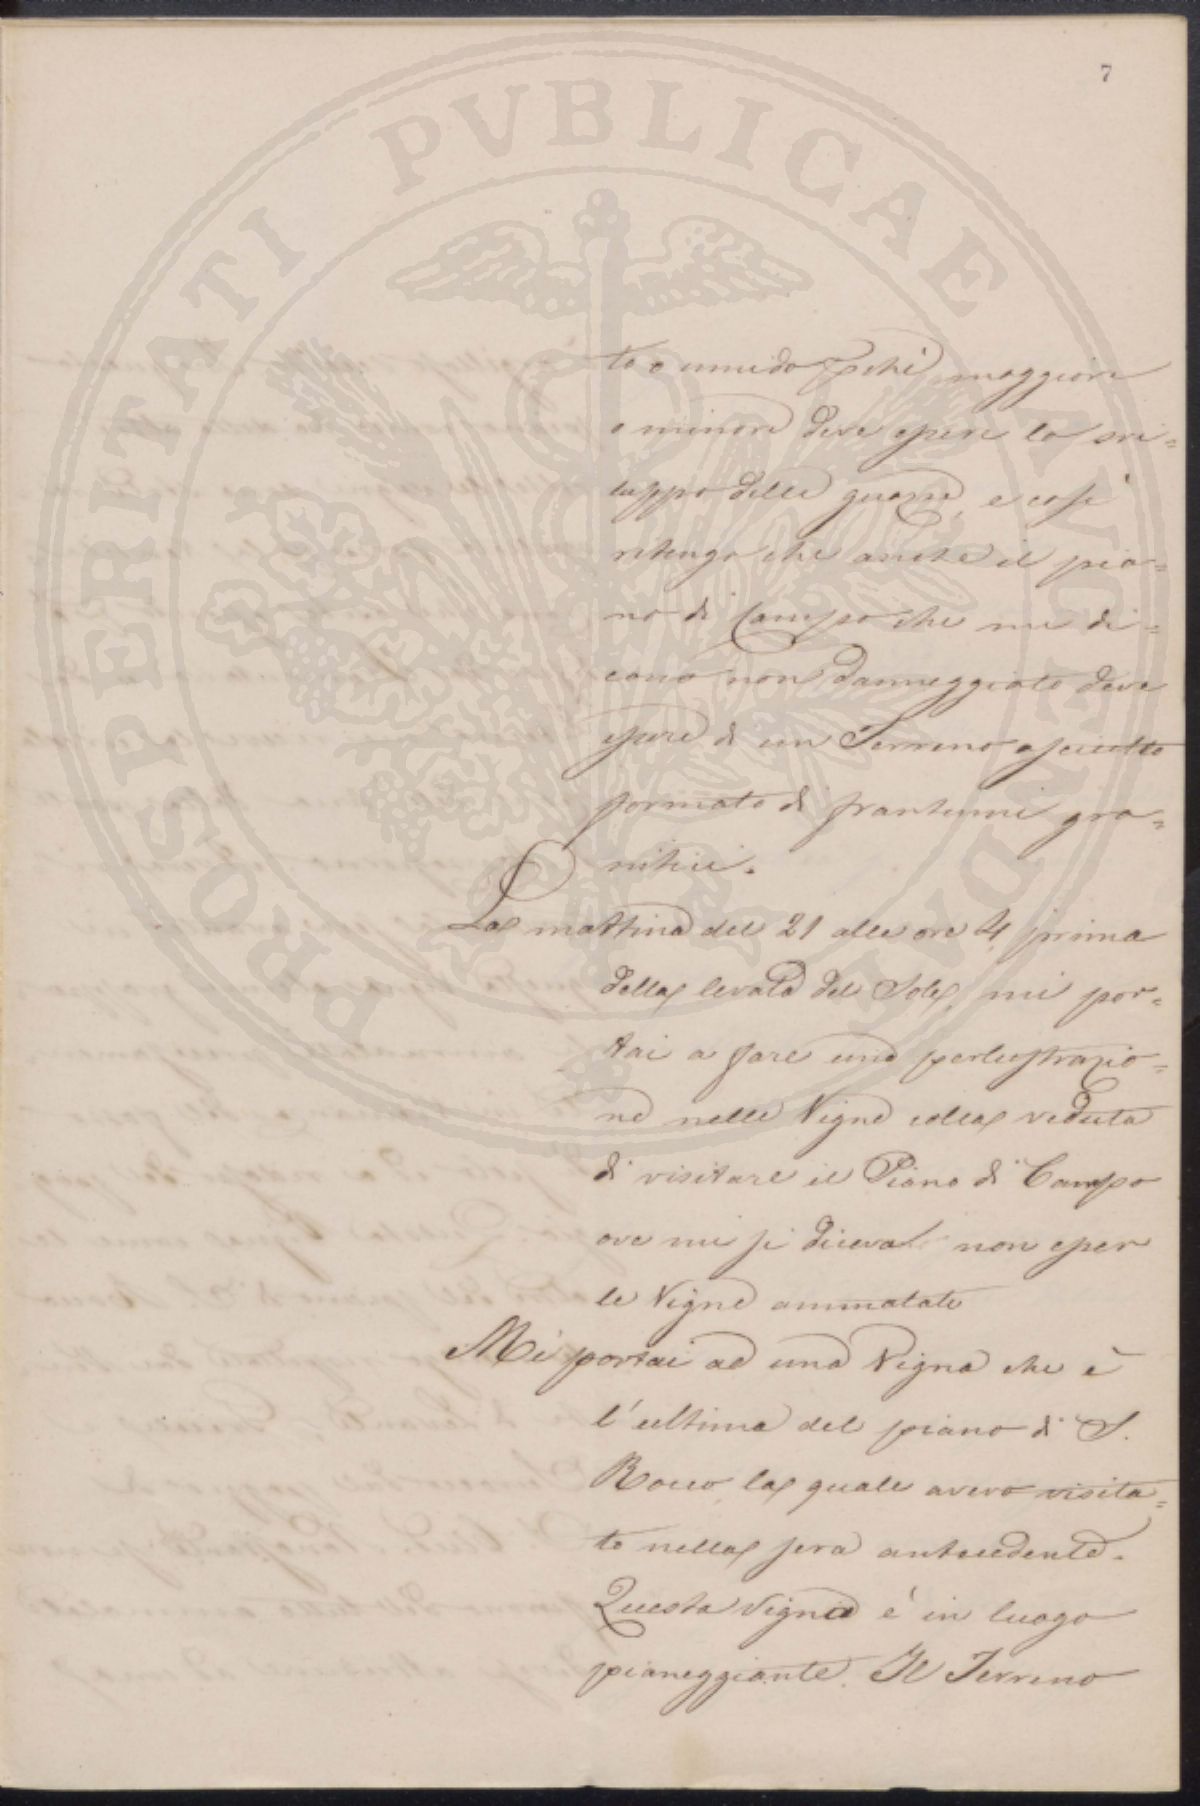 7
PROSPERITATI PVBLICAE AVGENDAE
to o umido pchè maggiore
o minore deve essere lo svi=
luppo delle guasse, e così
ritengo che anche il pia=
no di Campo che mi di=
cono non danneggiato deve
essere di un Terreno asciutto
formato di frantumi gra=
nitici.
La mattina del 21 alle ore 4 prima
della levata del Sole, mi por=
tai a fare una perlustrazio=
ne nelle Vigne colla veduta
di visitare il Piano di Campo
ove mi si diceva non esser
le Vigne ammalate
Mi portai ad una Vigna che è
l'ultima del piano di S.
Rocco, la quale avevo visita=
to nella sera antecedente.
Questa Vigna è in luogo
pianeggiante. Il Terreno